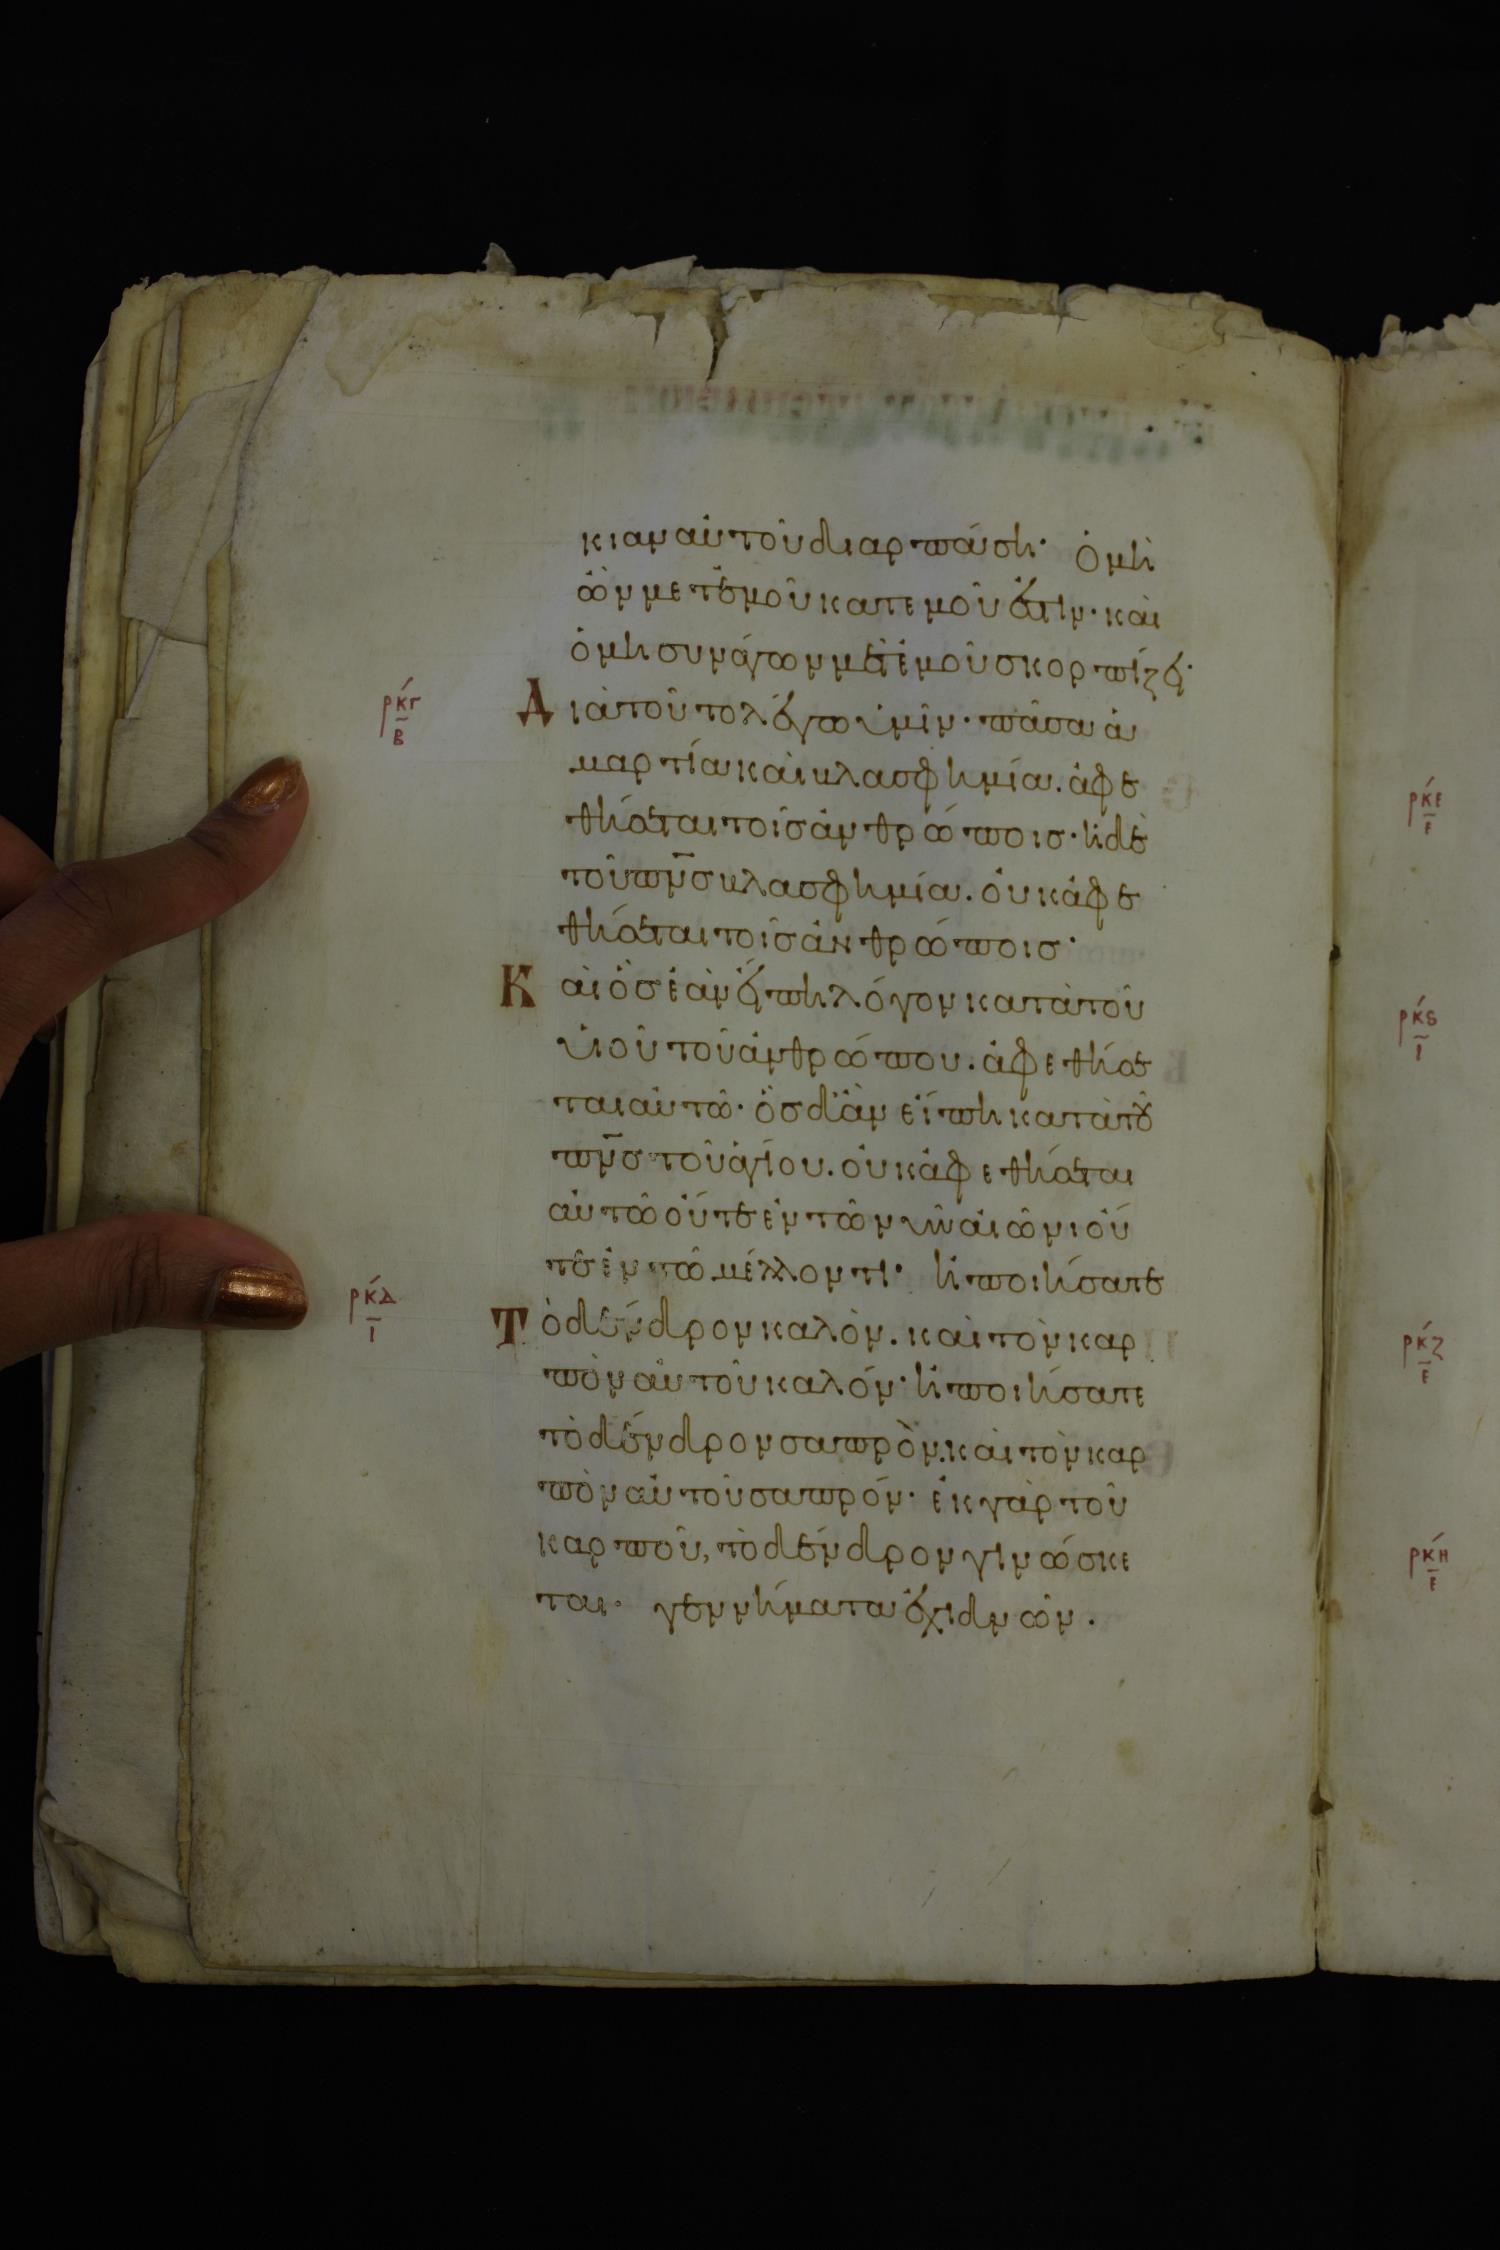 κιαν αὐτοῦ διαρπάσῃ· ὁ μὴ
ὢν μετ ἐμοῦ κατ ἐμοῦ ἐστιν· καὶ
ὁ μὴ συνάγων μετ ἐμοῦ σκορπίζει·
ρκγ β Διὰ τοῦτο λέγω ὑμῖν· πᾶσα ἁ
μαρτία καὶ βλασφημία. ἀφε
θήσεται τοῖς ἀνθρώποις· ἡ δὲ
τοῦ πνς βλασφημία. οὐκ ἀφε
θήσεται τοῖς ἀνθρώποις·
Καὶ ὃς ἐὰν εἴπη λόγον κατὰ τοῦ
υἱοῦ τοῦ ἀνθρώπου. ἀφεθήσε
ται αὐτῶ· ὃς δ ἂν εἴπη κατὰ τοῦ
πνς τοῦ ἁγίου. οὐκ ἀφεθήσεται
αὐτῶ οὔτε ἐν τῶ νῦν αἰῶνι οὔ
τε ἐν τῶ μέλλοντι· ἢ ποιήσατε
ρκδ ι Τὸ δένδρον καλὸν. καὶ τὸν καρ
πὸν αὐτοῦ καλόν· ἢ ποιήσατε
τὸ δένδρον σαπρὸν. καὶ τὸν καρ
πὸν αὐτοῦ σαπρόν· ἐκ γὰρ τοῦ
καρποῦ, τὸ δένδρον γινώσκε
ται· γεννήματα ἐχιδνῶν.
ρκε ε
ρκς ι
ρκζ ε
ρκη ε